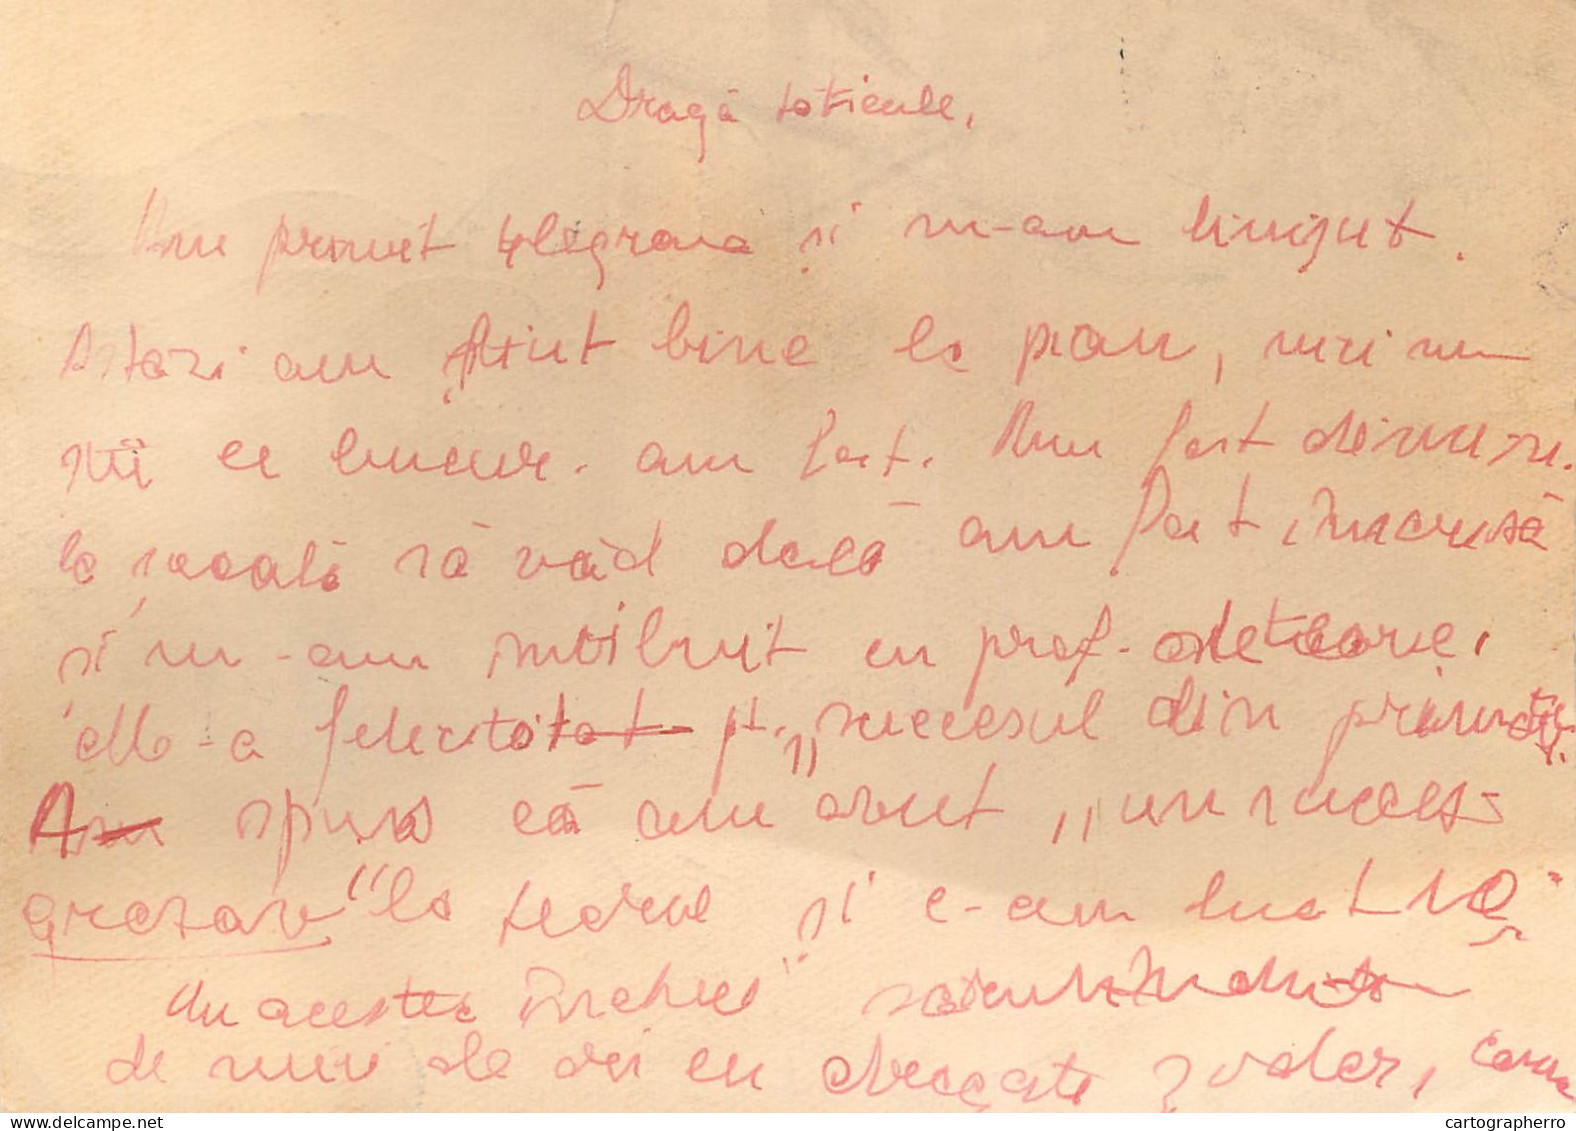 Dragă toticule,
Am primit telegrama și m-am liniștit.
Astăzi am știut bine la pian, nici nu
știi ce bucur. am fost. Am fost dimin.
la școală să văd dacă am fost înscrisă
și m-am întîlnit cu prof. de teorie.
M-a felicitat pt. „succesul din primăv."
Am spus că am avut „un succes
grozav" la teorie și c-am luat 10.
Cu acestea închei
de mii de ori cu dragoste